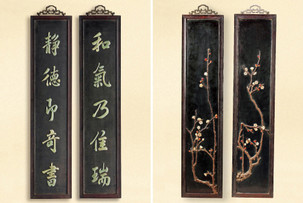 和氣乃佳瑞
靜德即奇書